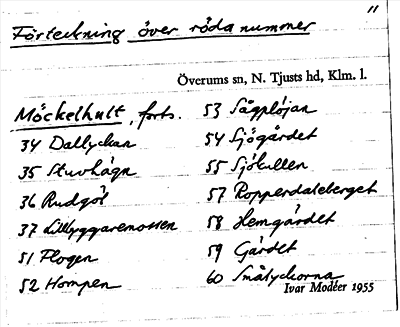 11
Förteckning över röda nummer
Överums sn, N. Tjusts hd, Klm. l.
Möckelhult, forts.
34 Dallyckan
35 Stuvhägn
36 Rudgöl
37 Lillbyggaremossen
51 Plogen
52 Hampen
53 Sågplöjan
54 Sjögärdet
55 Sjökullen
57 Kopperdalsberget
58 Hemgärdet
59 Gärdet
60 Smålyckorna
Ivar Modéer 1955